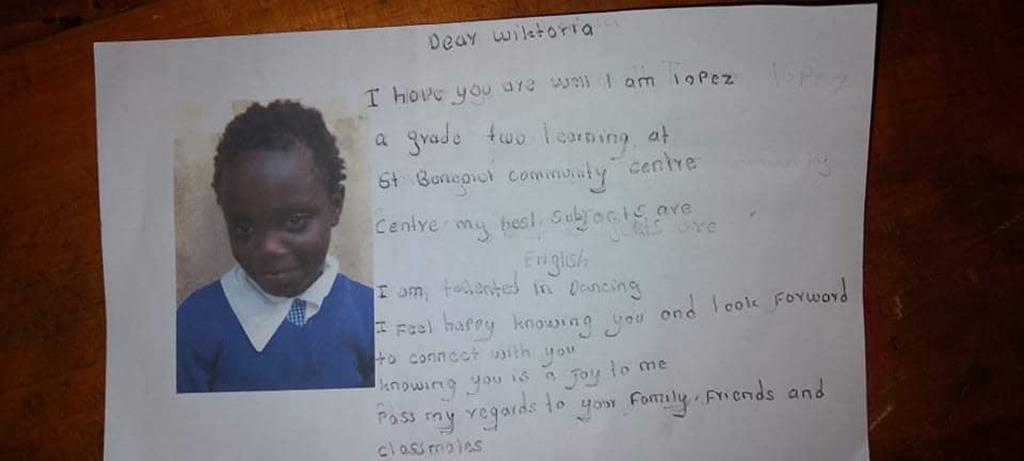 Dear Wiktoria
I hope you are well I am Topez
a grade two learning at
St Benedict community centre
Centre my best subjects are
English
I am, talented in Dancing
I Feel happy knowing you and look Forward
to connect with you
knowing you is a Joy to me
Pass my regards to your Family, Friends and
classmates